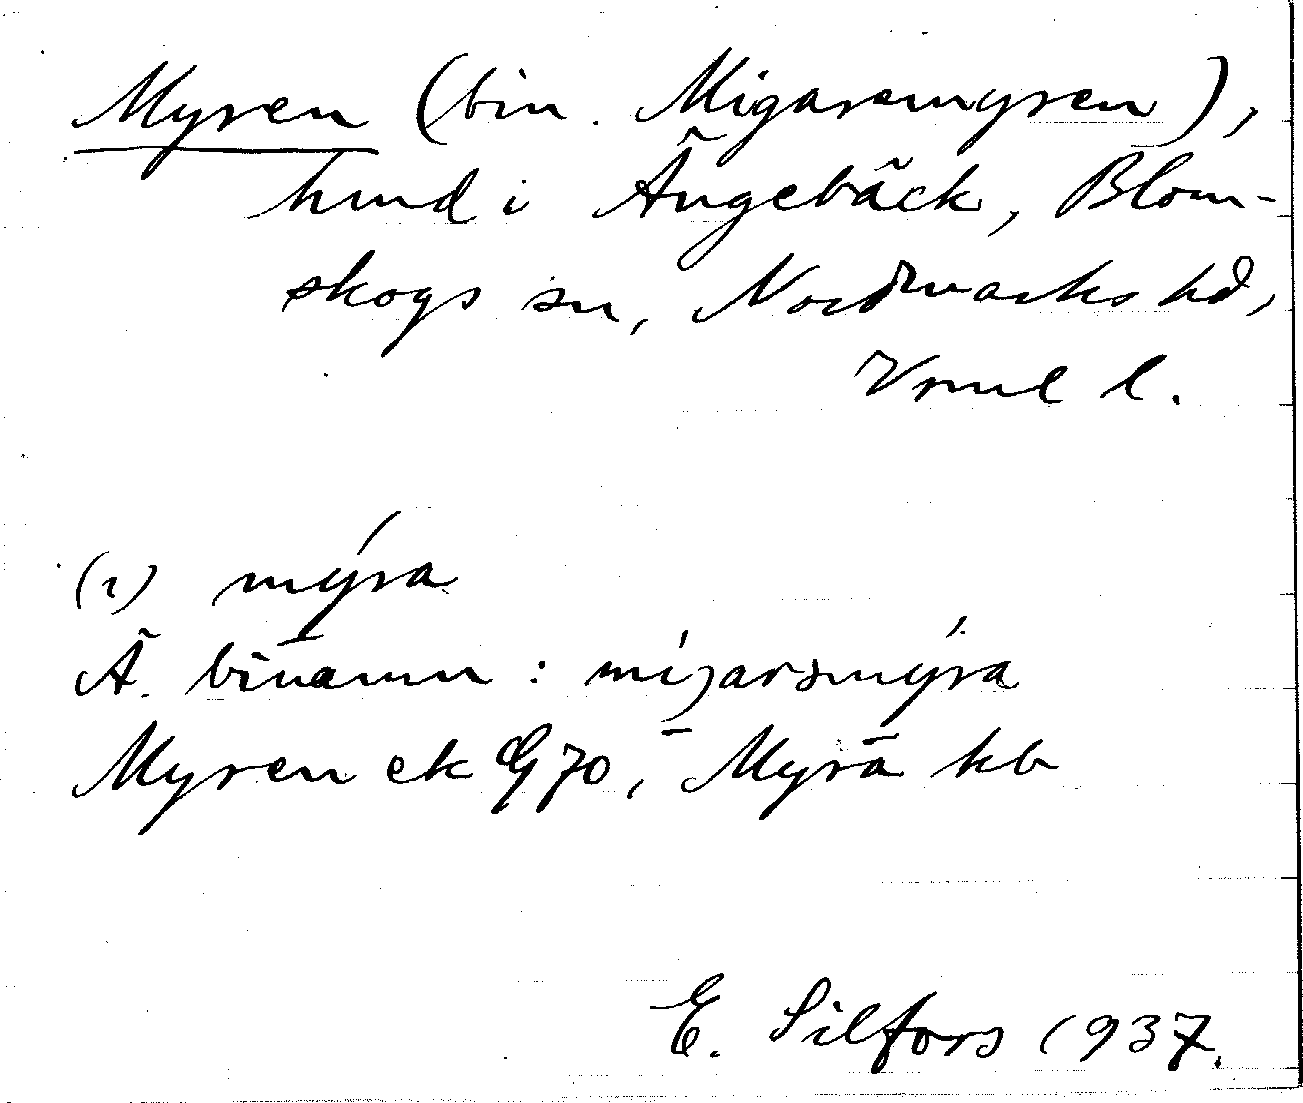 Myren (bin. Migaremyren),
hmd i Ängebäck, Blom-
skogs sn, Nordmarks hd,
Vrml l.
(1) mýra
Ä. binamn: míjarsmýra
Myren ek G 70, Myrä kb
E. Silfors 1937.